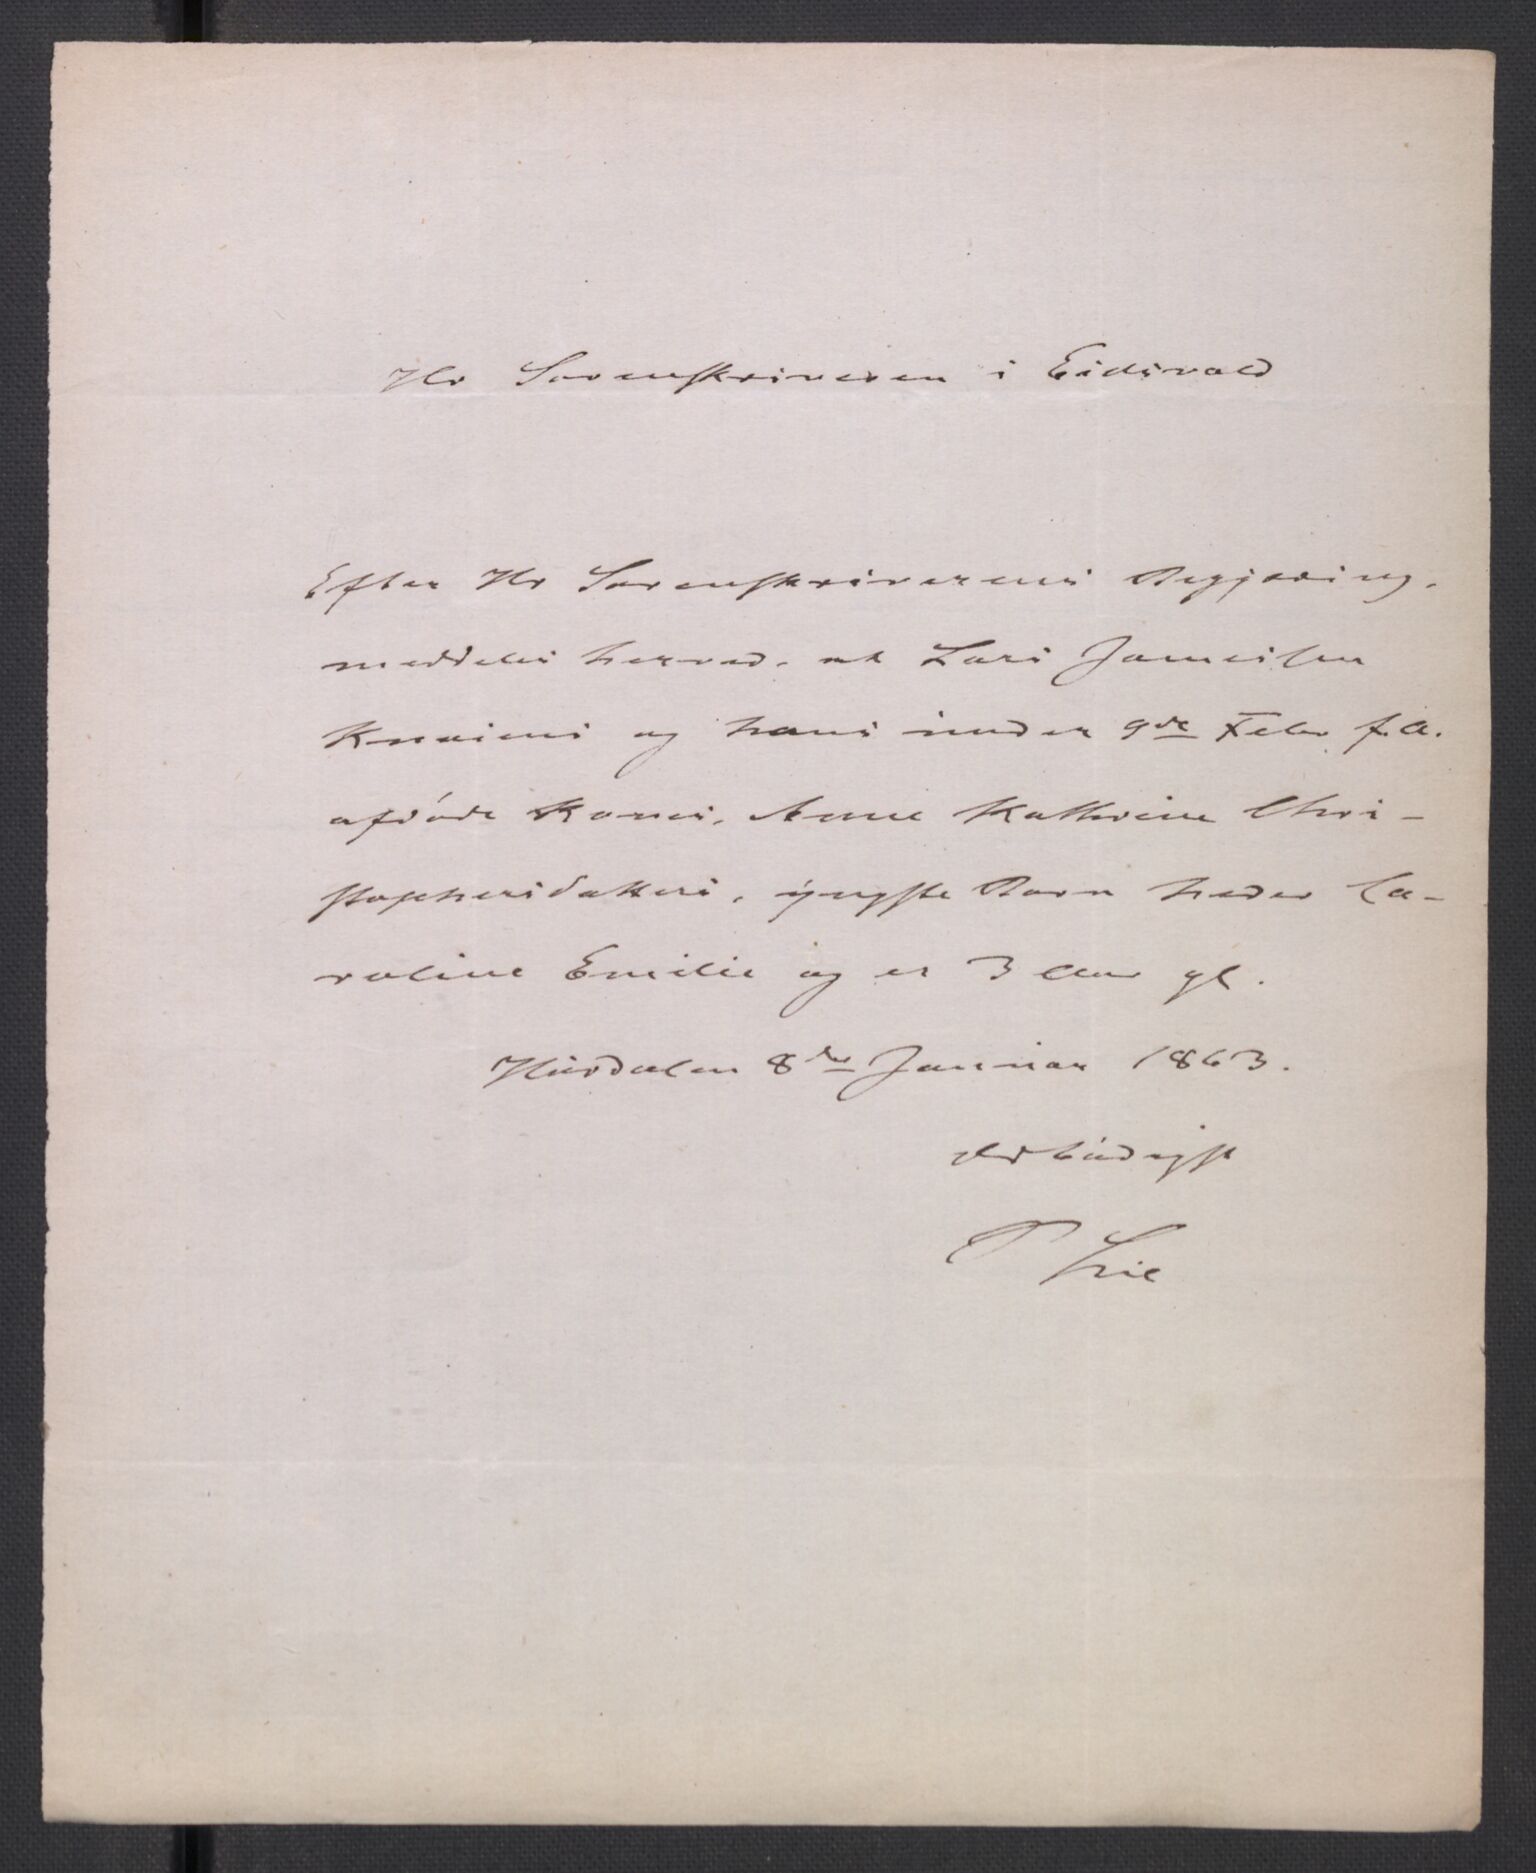 Hr Sorenskriveren i Eidsvold
Efter Hr Sorenskriverens Begjæring,
meddeles herved, at Lars Jameisen
og hans under 9de Febr f. A.
afdøde Kones, Anne Kathrine Chri-
stophersdatters, yngste Barn heder Ca-
roline Emilie og er 3 Aar gl.
Hurdalen 8de Januar 1863.
Ærbødigst
P Lie